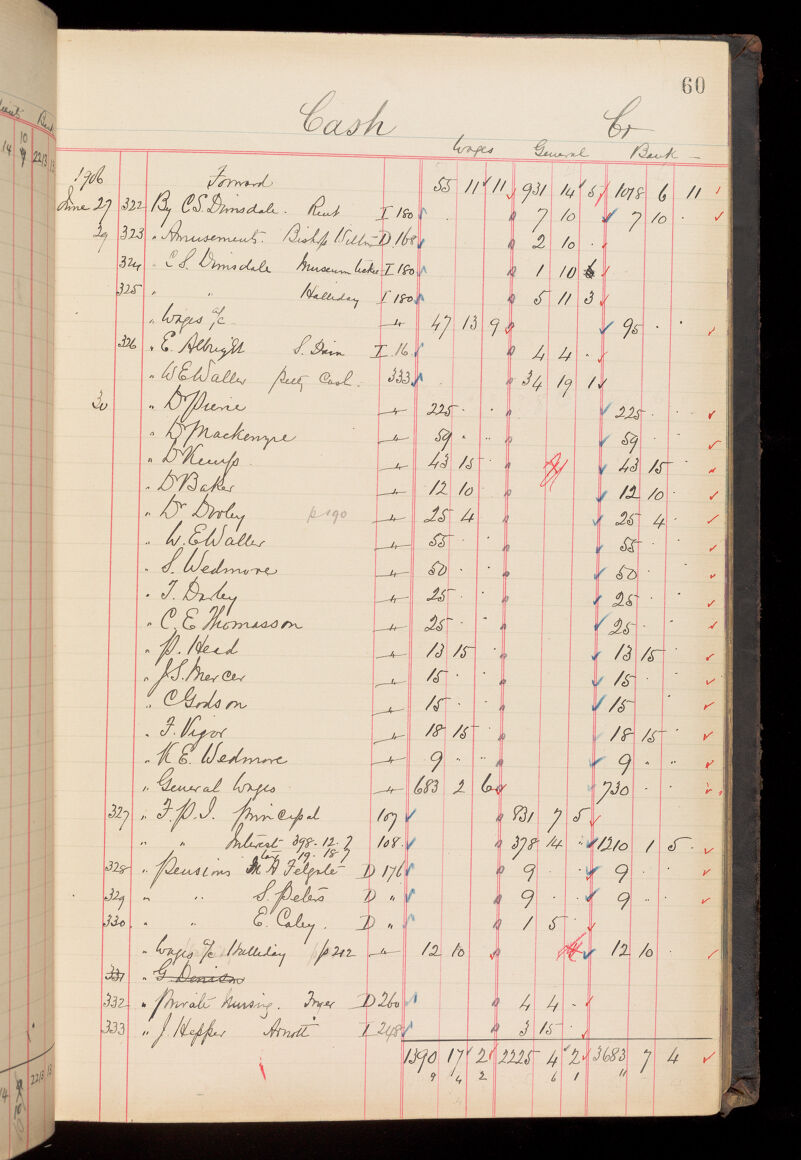 60
Cash Cr
Wages General Bank
1906 Forward 55 11 11 931 14 5 1078 6 11
June 27 322 By C S Dimsdale. Rent I 180 7 10 7 10 ·
29 323 " Amusements. Bishop D 168 2 10 ·
324 " C S. Dimsdale Museum I 180 1 10 6
325 " " Halliday I 180 5 11 3
" Wages a/c 47 13 9 95 · ·
326 " E. Albright S. Dain I 16 4 4 ·
" W E Waller petty Cash. 333 34 19 1
30 " Dr Pierce 225 · · 225 · ·
" Dr Mackenzie 59 · · 59 · ·
" Dr Kemp 43 15 · 43 15 ·
" Dr Baker 12 10 · 12 10 ·
" Dr p 190 25 4 · 25 4 ·
" W. E Waller 55 · · 55 · ·
" S. Wedmore 50 · · 50 · ·
" T. Darley 25 · · 25 · ·
" C. E Thomasson 25 · · 25 · ·
" P. Head 13 15 · 13 15 ·
" J S. Mercer 15 · · 15 · ·
" C Godson 15 · · 15 · ·
" F. Vigor 18 15 · 18 15 ·
" K E. Wedmore 9 · · 9 · ·
" General Wages 683 2 6 730 · ·
327 " F. P. I. Principal 107 831 7 5
" " Interest 398. 12. 7 108 378 14 · 1210 1 5
tax 19. 18 7
328 " Pensions M A Felgate D 176 9 · · 9 · ·
329 " " S. Peters D " 9 · · 9 · ·
330. " " E. Caley. D " 1 5 ·
" Wages a/c Halliday p 212 12 10 · 12 10 ·
331 " G Denison
332 " Private Nursing. Fryer D 260 4 4 ·
333 " J. Hepper Arnott I 248 3 15 ·
1390 17 2 2225 4 2 3683 7 4
9 4 2 6 1 "